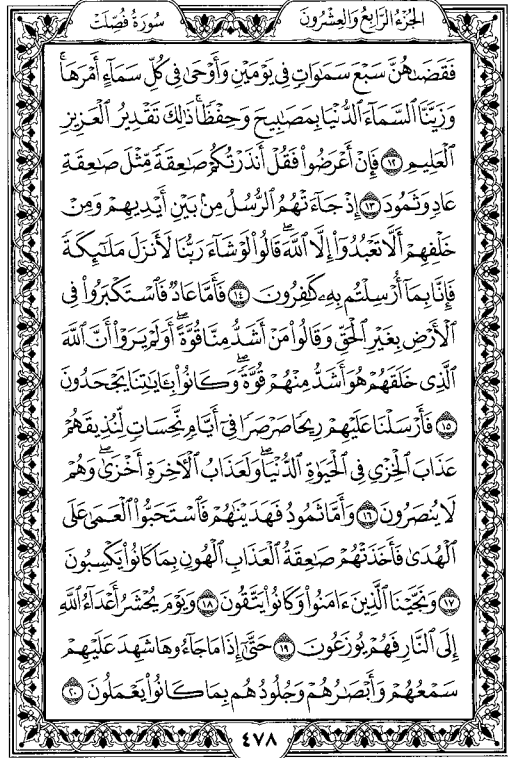 الجزء الرابع والعشرون
سورة فصلت
فَقَضَىٰهُنَّ سَبْعَ سَمَٰوَاتٍ فِي يَوْمَيْنِ وَأَوْحَىٰ فِي كُلِّ سَمَآءٍ أَمْرَهَاۚ
وَزَيَّنَّا ٱلسَّمَآءَ ٱلدُّنْيَا بِمَصَٰبِيحَ وَحِفْظًاۚ ذَٰلِكَ تَقْدِيرُ ٱلْعَزِيزِ
ٱلْعَلِيمِ ١٢ فَإِنْ أَعْرَضُوا۟ فَقُلْ أَنذَرْتُكُمْ صَٰعِقَةً مِّثْلَ صَٰعِقَةِ
عَادٍ وَثَمُودَ ١٣ إِذْ جَآءَتْهُمُ ٱلرُّسُلُ مِنۢ بَيْنِ أَيْدِيهِمْ وَمِنْ
خَلْفِهِمْ أَلَّا تَعْبُدُوٓا۟ إِلَّا ٱللَّهَۖ قَالُوا۟ لَوْ شَآءَ رَبُّنَا لَأَنزَلَ مَلَٰٓئِكَةً
فَإِنَّا بِمَآ أُرْسِلْتُم بِهِۦ كَٰفِرُونَ ١٤ فَأَمَّا عَادٌ فَٱسْتَكْبَرُوا۟ فِي
ٱلْأَرْضِ بِغَيْرِ ٱلْحَقِّ وَقَالُوا۟ مَنْ أَشَدُّ مِنَّا قُوَّةًۖ أَوَلَمْ يَرَوْا۟ أَنَّ ٱللَّهَ
ٱلَّذِي خَلَقَهُمْ هُوَ أَشَدُّ مِنْهُمْ قُوَّةًۖ وَكَانُوا۟ بِـَٔايَٰتِنَا يَجْحَدُونَ
١٥ فَأَرْسَلْنَا عَلَيْهِمْ رِيحًا صَرْصَرًا فِيٓ أَيَّامٍ نَّحِسَاتٍ لِّنُذِيقَهُمْ
عَذَابَ ٱلْخِزْيِ فِي ٱلْحَيَوٰةِ ٱلدُّنْيَاۖ وَلَعَذَابُ ٱلْءَاخِرَةِ أَخْزَىٰۖ وَهُمْ
لَا يُنصَرُونَ ١٦ وَأَمَّا ثَمُودُ فَهَدَيْنَٰهُمْ فَٱسْتَحَبُّوا۟ ٱلْعَمَىٰ عَلَى
ٱلْهُدَىٰ فَأَخَذَتْهُمْ صَٰعِقَةُ ٱلْعَذَابِ ٱلْهُونِ بِمَا كَانُوا۟ يَكْسِبُونَ
١٧ وَنَجَّيْنَا ٱلَّذِينَ ءَامَنُوا۟ وَكَانُوا۟ يَتَّقُونَ ١٨ وَيَوْمَ يُحْشَرُ أَعْدَآءُ ٱللَّهِ
إِلَى ٱلنَّارِ فَهُمْ يُوزَعُونَ ١٩ حَتَّىٰٓ إِذَا مَا جَآءُوهَا شَهِدَ عَلَيْهِمْ
سَمْعُهُمْ وَأَبْصَٰرُهُمْ وَجُلُودُهُم بِمَا كَانُوا۟ يَعْمَلُونَ ٢٠
٤٧٨